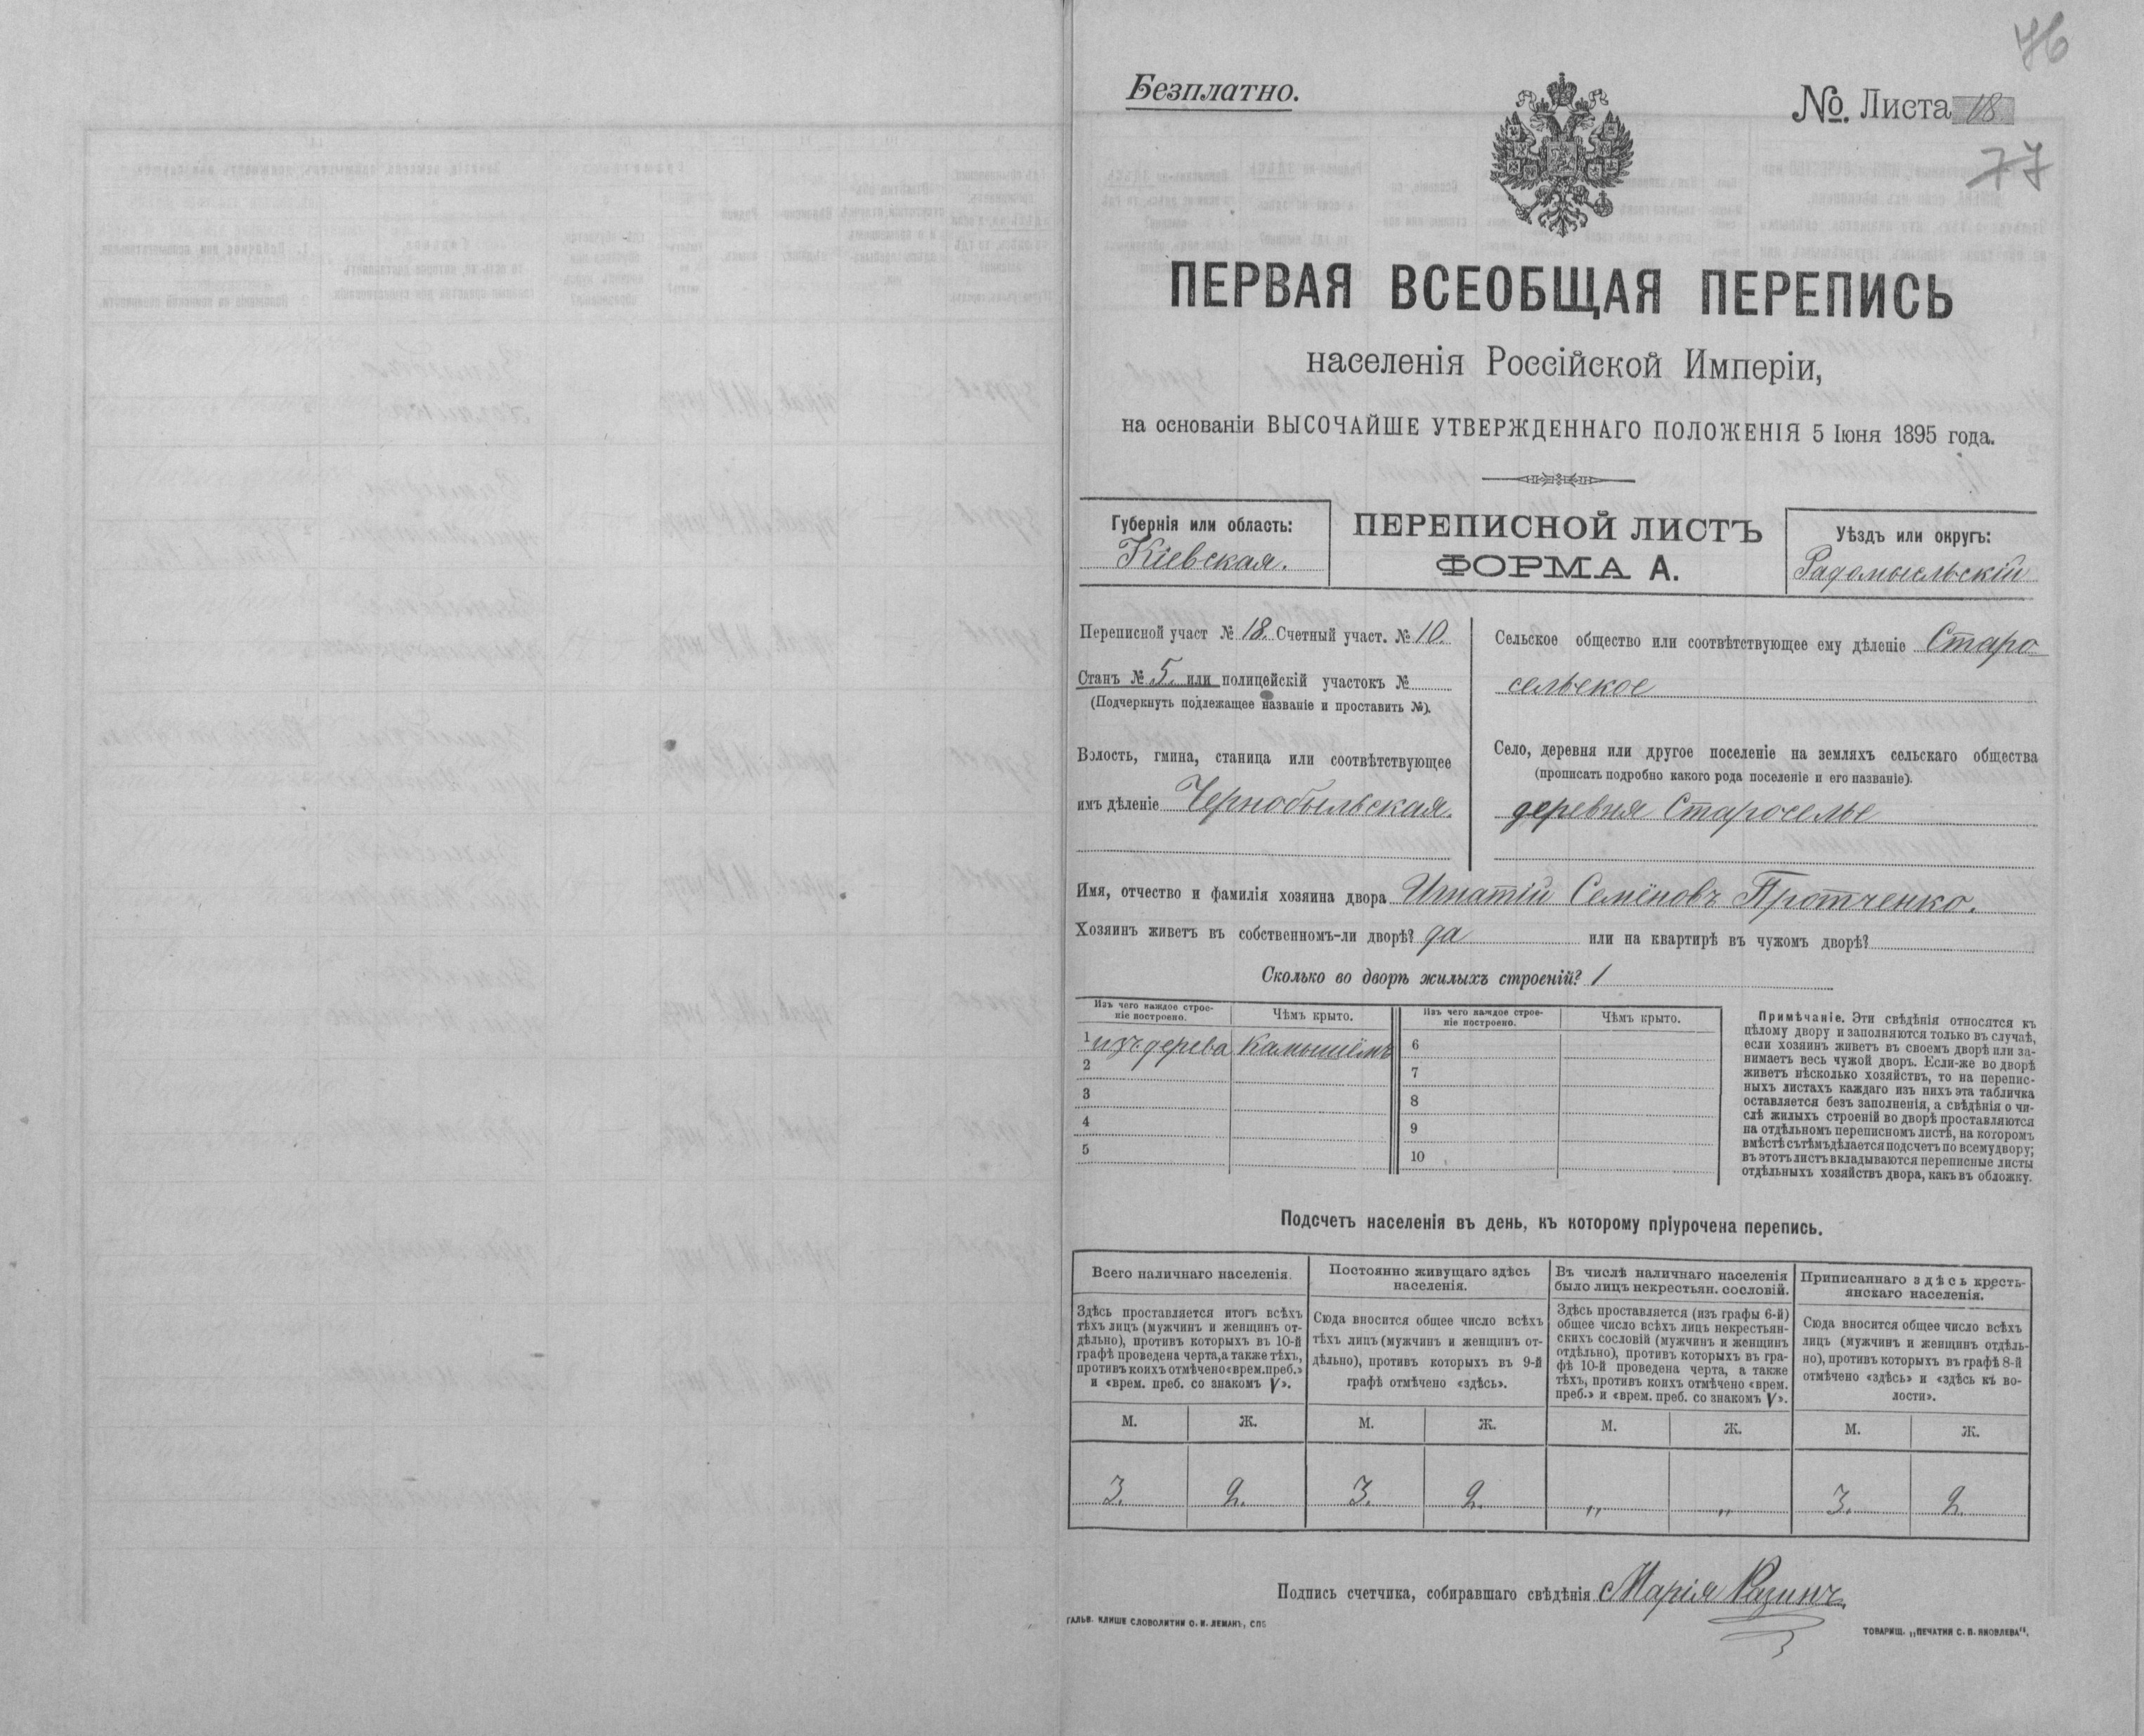 46
Безплатно.
№. Листа 18
77
ПЕРВАЯ ВСЕОБЩАЯ ПЕРЕПИСЬ
населенія Россійской Имперіи,
на основаніи ВЫСОЧАЙШЕ УТВЕРЖДЕННАГО ПОЛОЖЕНІЯ 5 Іюня 1895 года.
Губернія или область:
Кіевская.
ПЕРЕПИСНОЙ ЛИСТЪ
ФОРМА А.
Уѣздъ или округъ:
Радомысльскій
Переписной участ № 18. Счетный участ. № 10.
Станъ № 5. или полицейскій участокъ №
(Подчеркнуть подлежащее названіе и проставить №).
Волость, гмина, станица или соотвѣтствующее
имъ дѣленіе Чернобыльская.
Сельское общество или соотвѣтствующее ему дѣленіе Старо
сельское
Село, деревня или другое поселеніе на земляхъ сельскаго общества
(прописать подробно какого рода поселеніе и его названіе).
деревня Староселье
Имя, отчество и фамилія хозяина двора Игнатій Семёновъ Протченко.
Хозяинъ живетъ въ собственномъ-ли дворѣ? да или на квартирѣ въ чужомъ дворѣ?
Сколько во дворѣ жилыхъ строеній? 1
Изъ чего каждое строе-
ніе построено.
Чѣмъ крыто.
Изъ чего каждое строе-
ніе построено.
Чѣмъ крыто.
1 изъ дерева Камышёмъ 6
2 7
3 8
4 9
5 10
Примѣчаніе. Эти свѣдѣнія относятся къ
цѣлому двору и заполняются только въ случаѣ,
если хозяинъ живетъ въ своемъ дворѣ или за-
нимаетъ весь чужой дворъ. Если-же во дворѣ
живетъ нѣсколько хозяйствъ, то на перепис-
ныхъ листахъ каждаго изъ нихъ эта табличка
оставляется безъ заполненія, а свѣдѣнія о чи-
слѣ жилыхъ строеній во дворѣ проставляются
на отдѣльномъ переписномъ листѣ, на которомъ
вмѣстѣ съ тѣмъ дѣлается подсчетъ по всему двору;
въ этотъ листъ вкладываются переписные листы
отдѣльныхъ хозяйствъ двора, какъ въ обложку.
Подсчетъ населенія въ день, къ которому пріурочена перепись.
Всего наличнаго населенія.
Здѣсь проставляется итогъ всѣхъ
тѣхъ лицъ (мужчинъ и женщинъ от-
дѣльно), противъ которыхъ въ 10-й
графѣ проведена черта, а также тѣхъ,
противъ коихъ отмѣчено «врем. преб.»
и «врем. преб. со знакомъ V».
Постоянно живущаго здѣсь
населенія.
Сюда вносится общее число всѣхъ
тѣхъ лицъ (мужчинъ и женщинъ от-
дѣльно), противъ которыхъ въ 9-й
графѣ отмѣчено «здѣсь».
Въ числѣ наличнаго населенія
было лицъ некрестьян. сословій.
Здѣсь проставляется (изъ графы 6-й)
общее число всѣхъ лицъ некрестьян-
скихъ сословій (мужчинъ и женщинъ
отдѣльно), противъ которыхъ въ гра-
фѣ 10-й проведена черта, а также
тѣхъ, противъ коихъ отмѣчено «врем.
преб.» и «врем. преб. со знакомъ V».
Приписаннаго здѣсь кресть-
янскаго населенія.
Сюда вносится общее число всѣхъ
лицъ (мужчинъ и женщинъ отдѣль-
но), противъ которыхъ въ графѣ 8-й
отмѣчено «здѣсь» и «здѣсь къ во-
лости».
М. Ж. М. Ж. М. Ж. М. Ж.
3. 2. 3. 2. „ „ 3. 2.
Подпись счетчика, собиравшаго свѣдѣнія Марія
ГАЛЬВ. КЛИШЕ СЛОВОЛИТНИ О. И. ЛЕМАНЪ, СПБ
ТОВАРИЩ. „ПЕЧАТНЯ С. П. ЯКОВЛЕВА“.